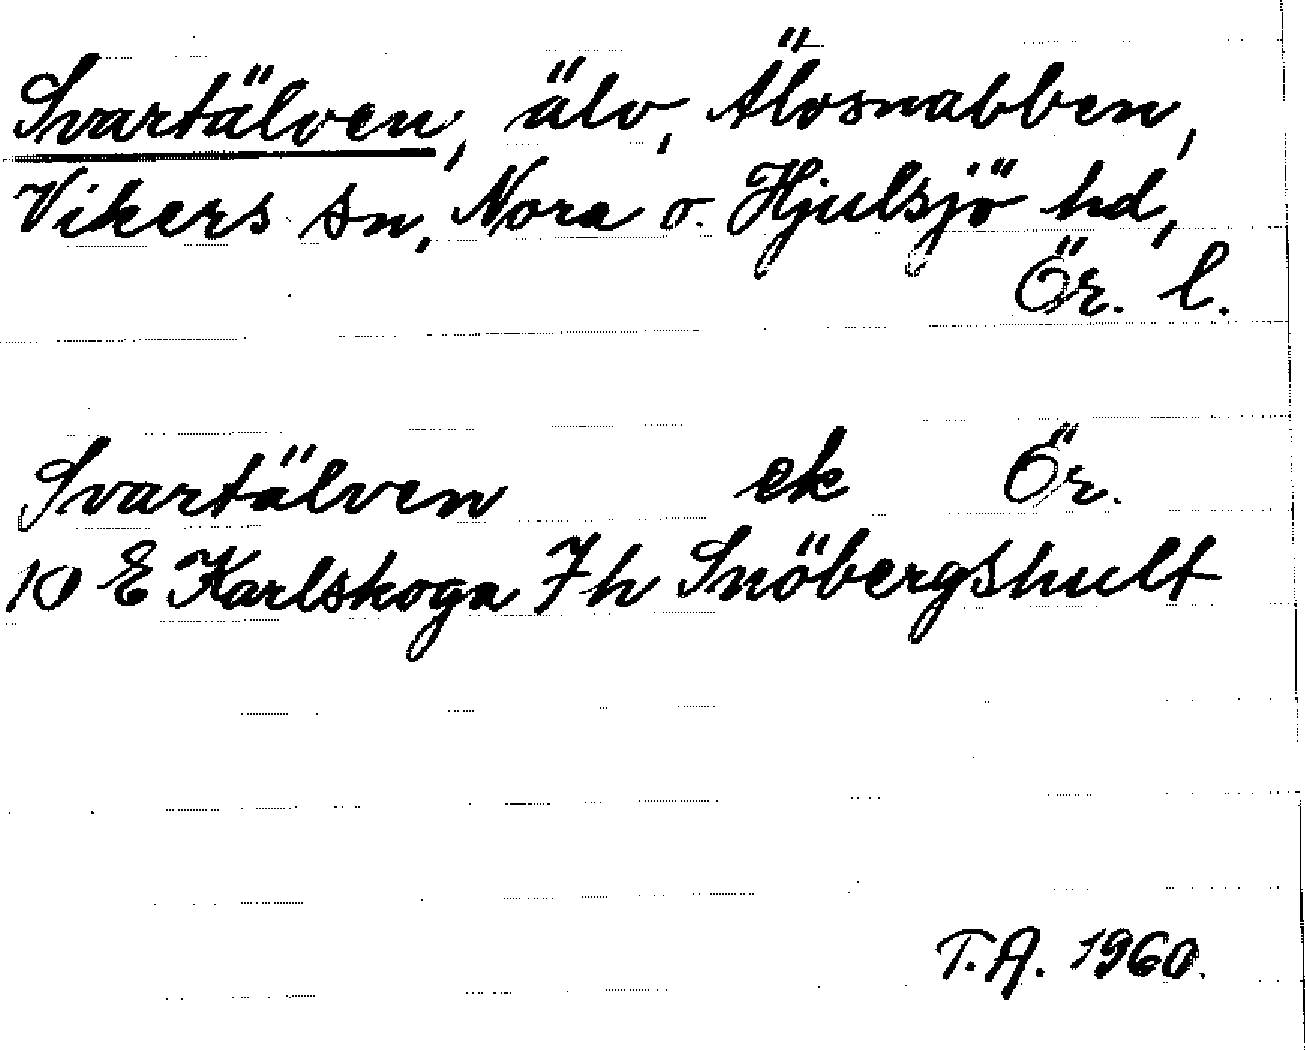 Svartälven, älv, Älvsnabben,
Vikers sn, Nora o. Hjulsjö hd,
Ör. l.
Svartälven ek Ör.
10 E Karlskoga 7h Snöbergshult
T.A. 1960.